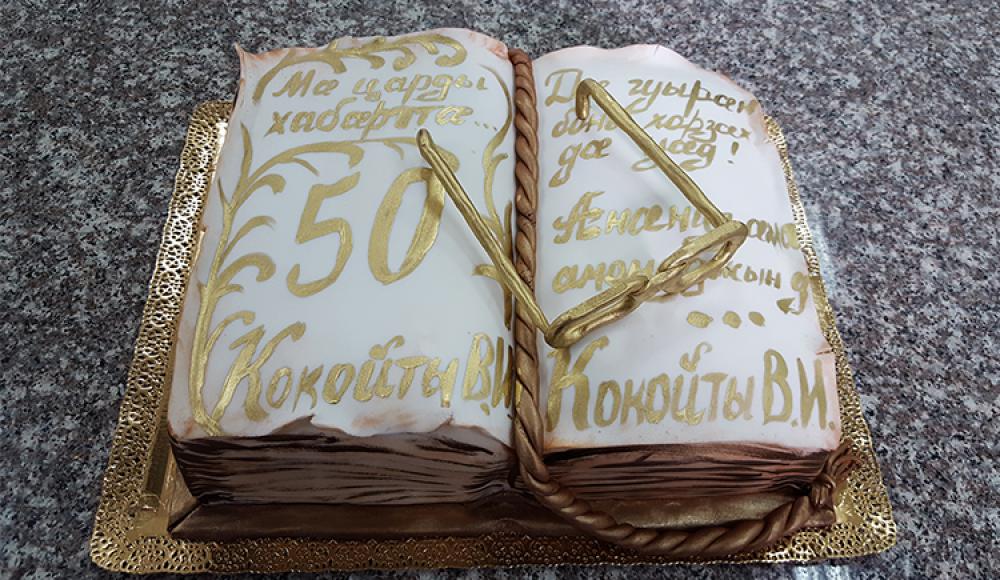 Ма царды
хабæртта...
50
Кокойты В.И
Дæ гуырæн
бон хорзæх
дæ уæд!
амондджын д
...
Кокойты В.И.